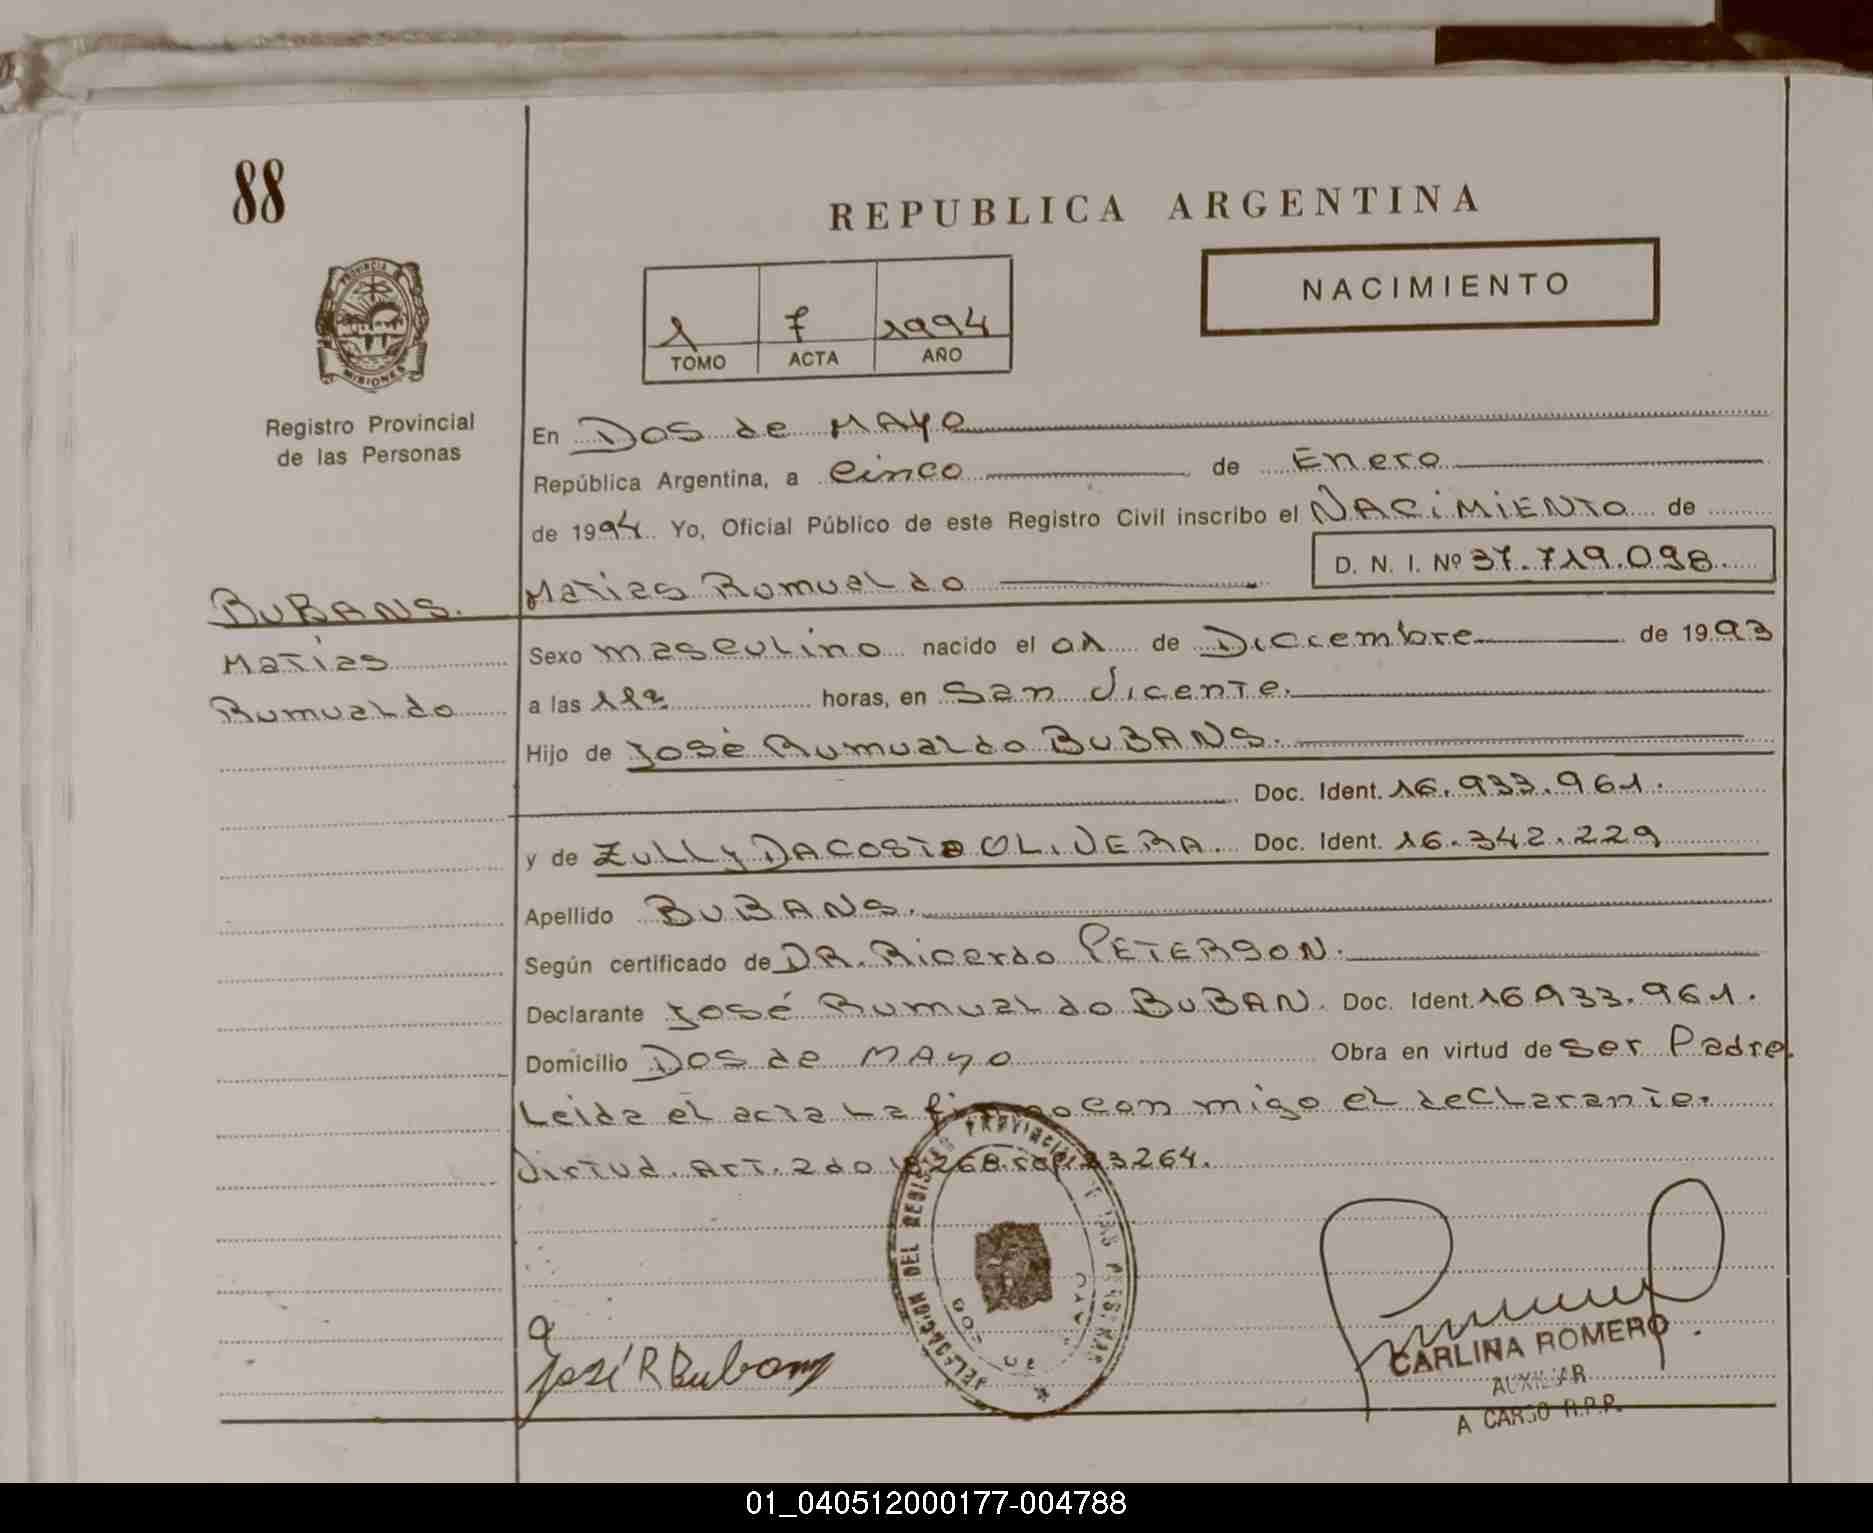 88
REPUBLICA ARGENTINA
NACIMIENTO
1 7 1994
TOMO ACTA AÑO
PROVINCIA
MISIONES
Registro Provincial
de las Personas
En Dos de MAYO
República Argentina, a cinco de Enero
de 1994. Yo, Oficial Público de este Registro Civil inscribo el NACIMIENTO de
D. N. I. Nº 37.719.098.
BUBANS. Matias Romualdo
Matías
Rumualdo
Sexo masculino nacido el 01 de Diciembre de 1993
a las 11 horas, en San Vicente.
Hijo de José Rumualdo BUBANS.
Doc. Ident. 16.933.961.
y de ZULLY DACOSTA OLIVERA. Doc. Ident. 16.342.229
Apellido BUBANS.
Según certificado de DR. Ricardo PETERSON.
Declarante José Rumualdo BUBAN. Doc. Ident. 16933.961.
Domicilio Dos de MAYO Obra en virtud de ser Padre.
Leida el acta La firmo con migo el declarante.
Virtud. Art. 2do 18268. 23264.
DELEGACION DEL REGISTRO PROVINCIAL DE LAS PERSONAS
DOS DE MAYO
José R Bubans
CARLINA ROMERO
AUXILIAR
A CARGO R.P.P.
01_040512000177-004788